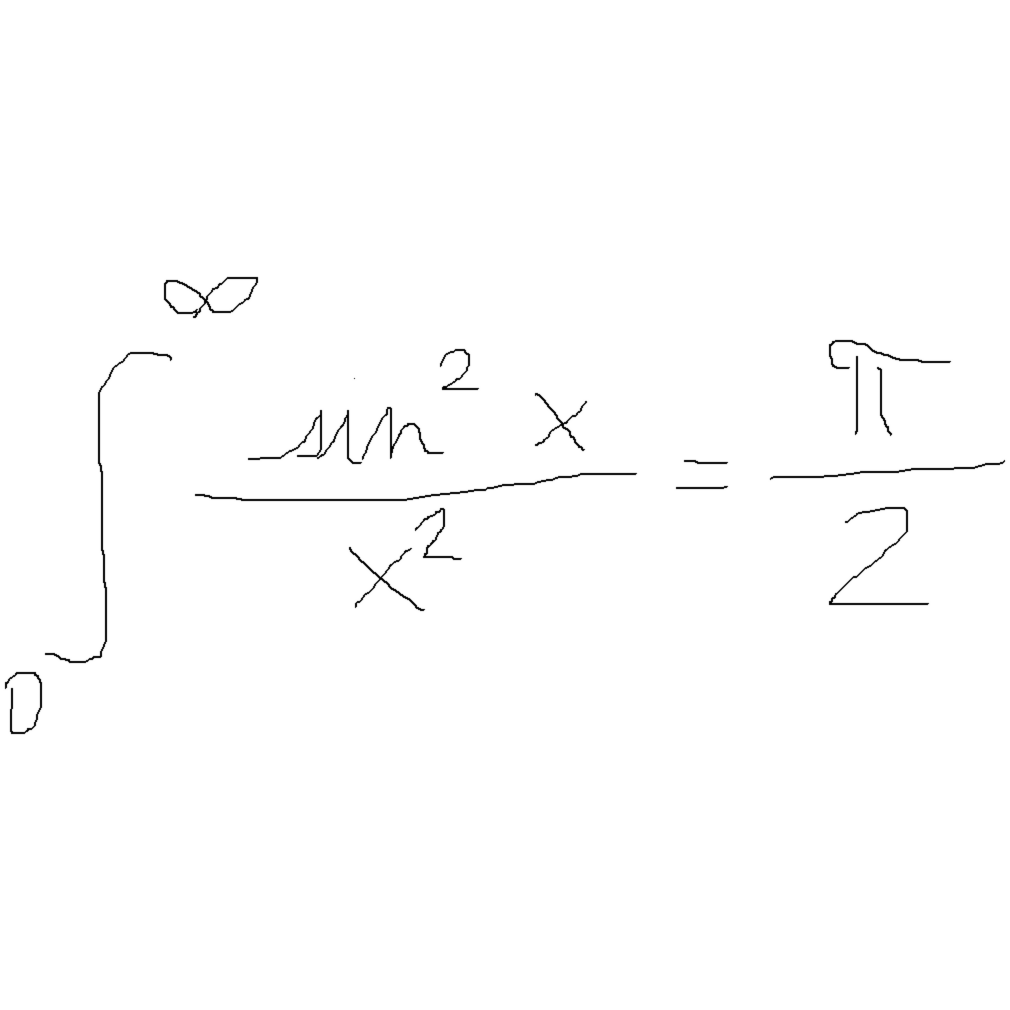 ∫₀^∞ sin² x / x² = π / 2